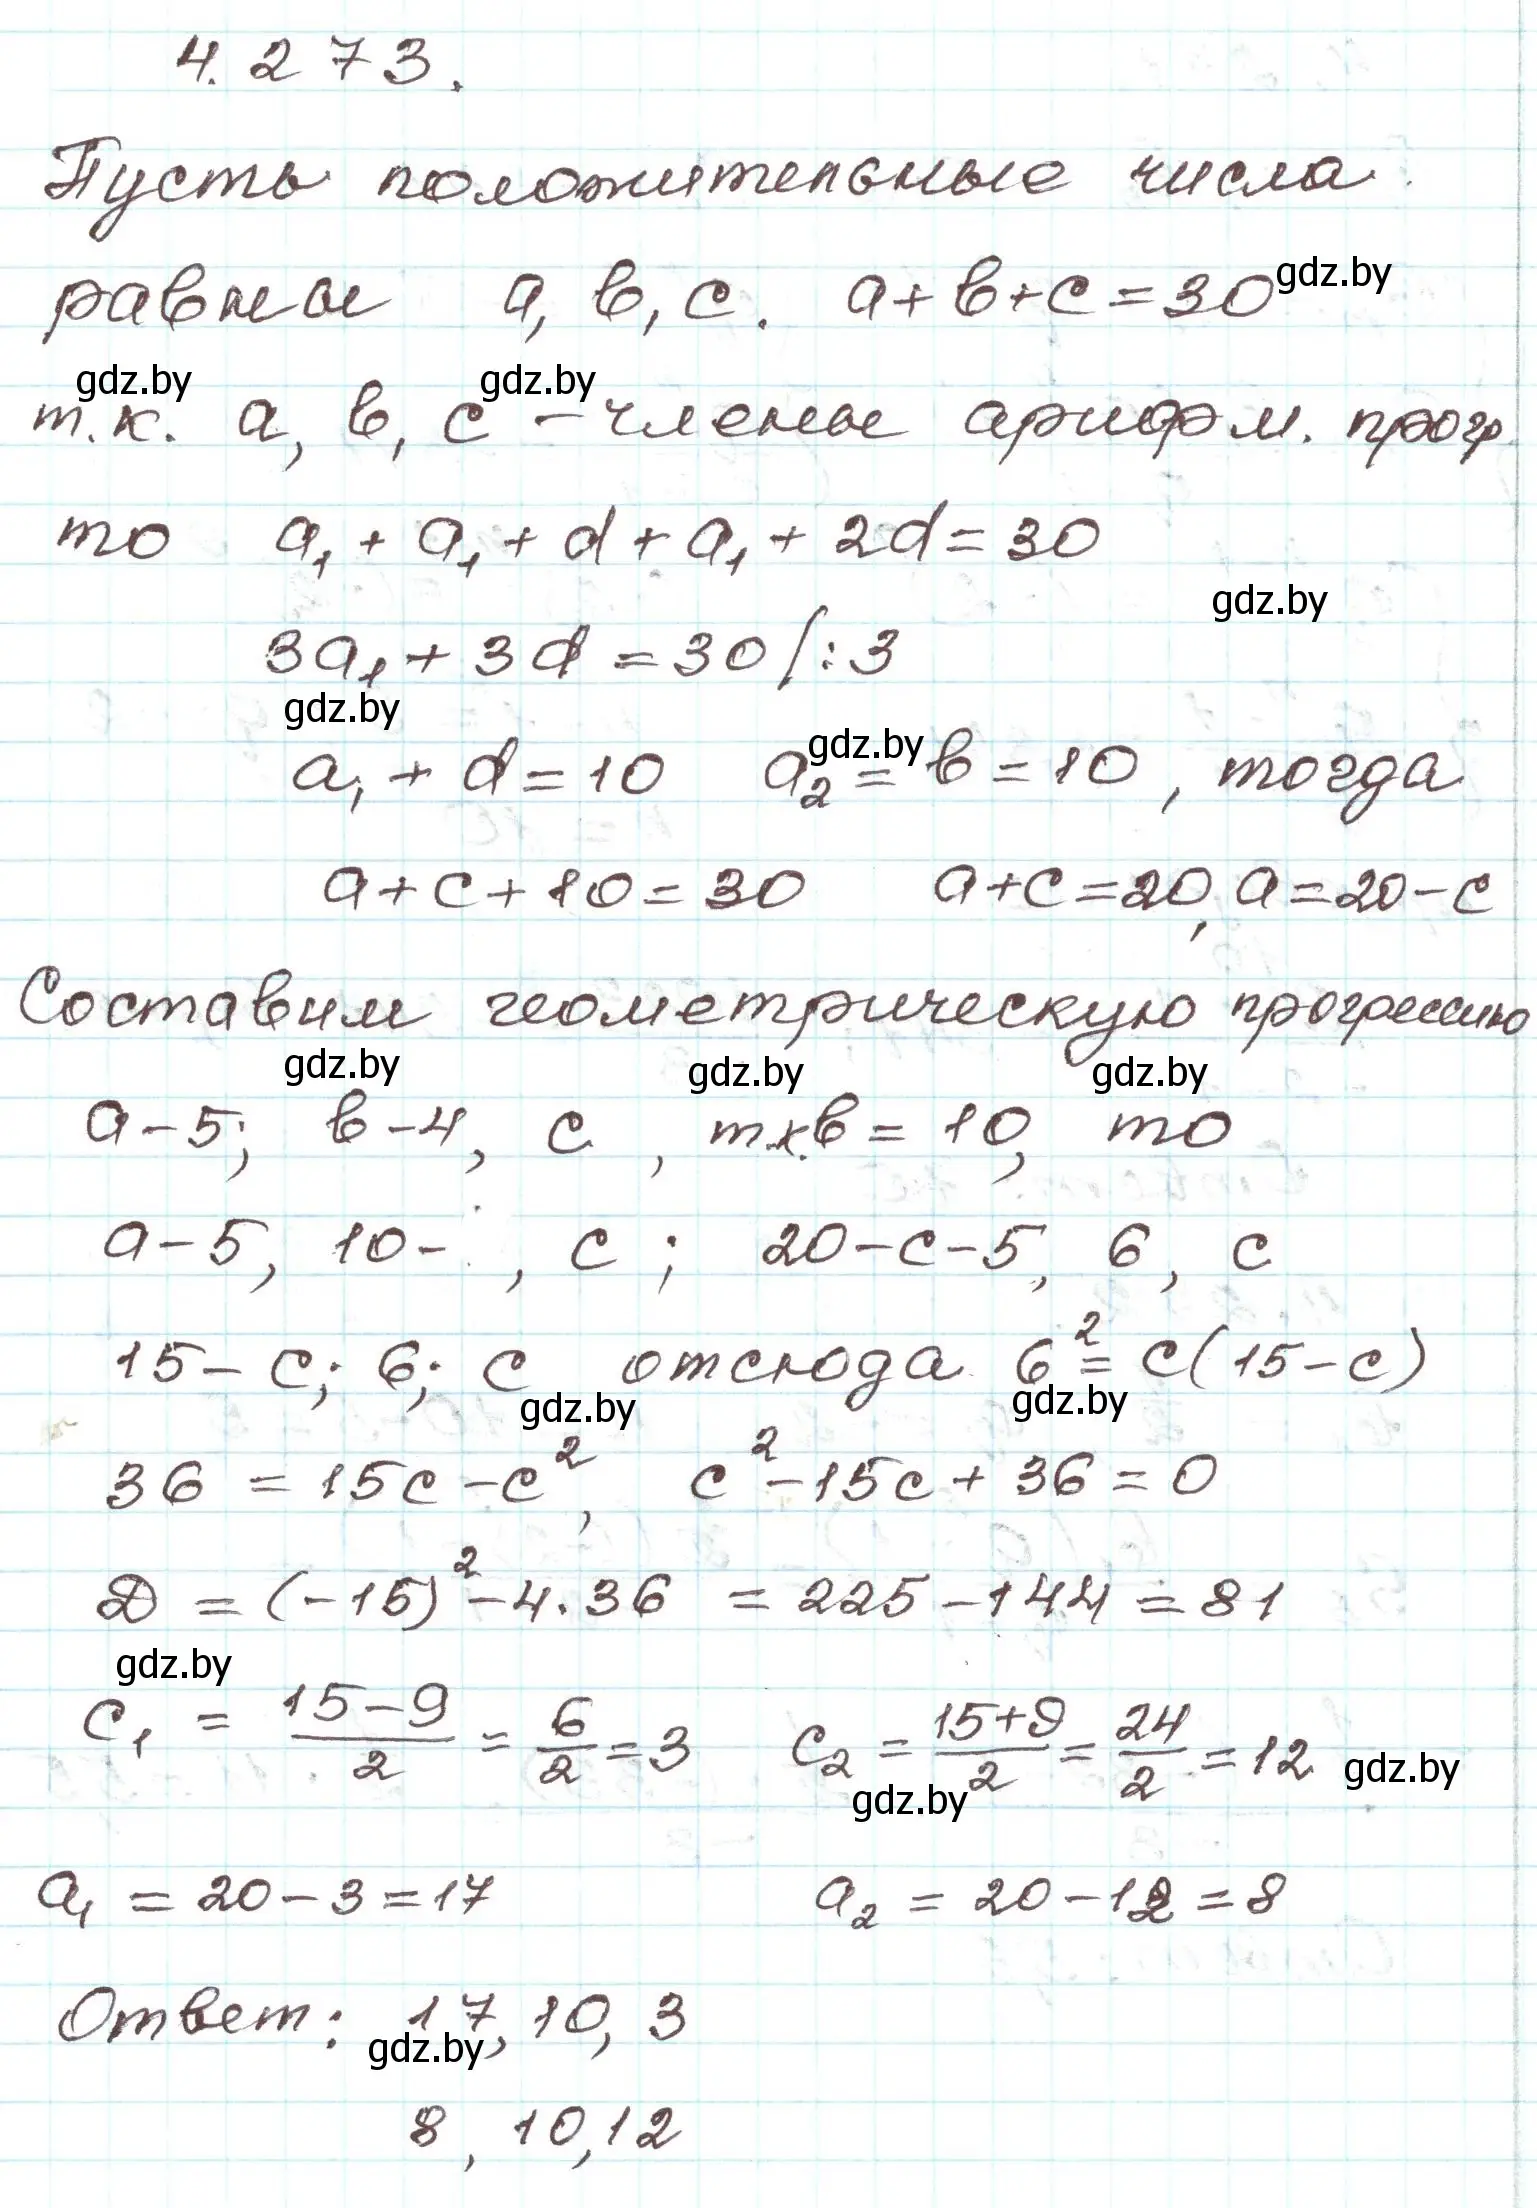 4.273.
Пусть положительные числа
равны a, в, c. a+в+c=30 gdz.by
gdz.by gdz.by
т.к. a, в, c – члены арифм. прогр
то a₁ + a₁ + d + a₁ + 2d = 30
gdz.by
3a₁ + 3d = 30 /:3
gdz.by gdz.by
a₁ + d = 10 a₂ = в = 10, тогда
a+c+10=30 a+c=20, a=20-c
Составим геометрическую прогрессию
gdz.by gdz.by gdz.by
a-5; в-4, c, т.к. в = 10, то
a-5, 10- , c; 20-c-5, 6, c
15-c; 6; c отсюда 6² = c(15-c)
gdz.by gdz.by
36 = 15c - c², c² - 15c + 36 = 0
D = (-15)² - 4·36 = 225 - 144 = 81
gdz.by
c₁ = \frac{15-9}{2} = \frac{6}{2} = 3 c₂ = \frac{15+9}{2} = \frac{24}{2} = 12 gdz.by
gdz.by
a₁ = 20-3 = 17 a₂ = 20-12 = 8
Ответ: 17, 10, 3
gdz.by
8, 10, 12